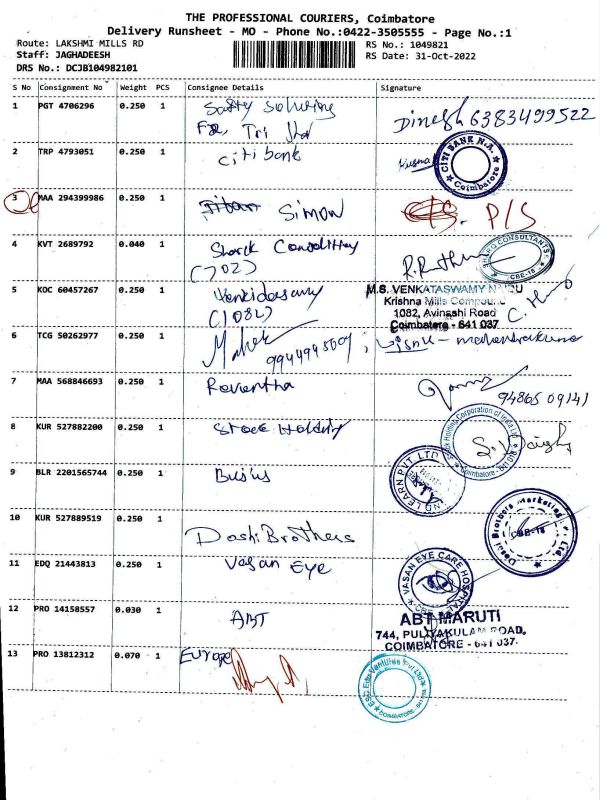 THE PROFESSIONAL COURIERS, Coimbatore
Delivery Runsheet - MO - Phone No.:0422-3505555 - Page No.:1
Route: LAKSHMI MILLS RD RS No.: 1049821
Staff: JAGHADEESH RS Date: 31-Oct-2022
DRS No.: DCJB104982101
S No Consignment No Weight PCS Consignee Details Signature
1 PGT 4706296 0.250 1 Dinesh 6383499522
For, Tri Star
2 TRP 4793051 0.250 1 Citi bank CITI BANK N.A. Coimbatore
3 MAA 294399986 0.250 1 Simon P/S
4 KVT 2689792 0.040 1 CONSULTANTS CBE-18
(702)
5 KOC 60457267 0.250 1 M.S. VENKATASWAMY NAIDU
(1082) Krishna Mills Compound
1082, Avinashi Road
Coimbatore - 641 037
6 TCG 50262977 0.250 1
7 MAA 568846693 0.250 1 Revantha 9486509141
8 KUR 527882200 0.250 1 Stock Holding Stock Holding Corporation of India Ltd Coimbatore
9 BLR 2201565744 0.250 1 AND LEARN PVT LTD
10 KUR 527889519 0.250 1 Brothers Brothers Marketing Pvt. Ltd. CBE-18
11 EDQ 21443813 0.250 1 Vasan Eye VASAN EYE CARE HOSPITAL CBE
12 PRO 14158557 0.030 1 ABT ABT MARUTI
744, PULIYAKULAM ROAD,
COIMBATORE - 641 037.
13 PRO 13812312 0.070 1 Europe Edu Ventures Pvt Ltd COIMBATORE